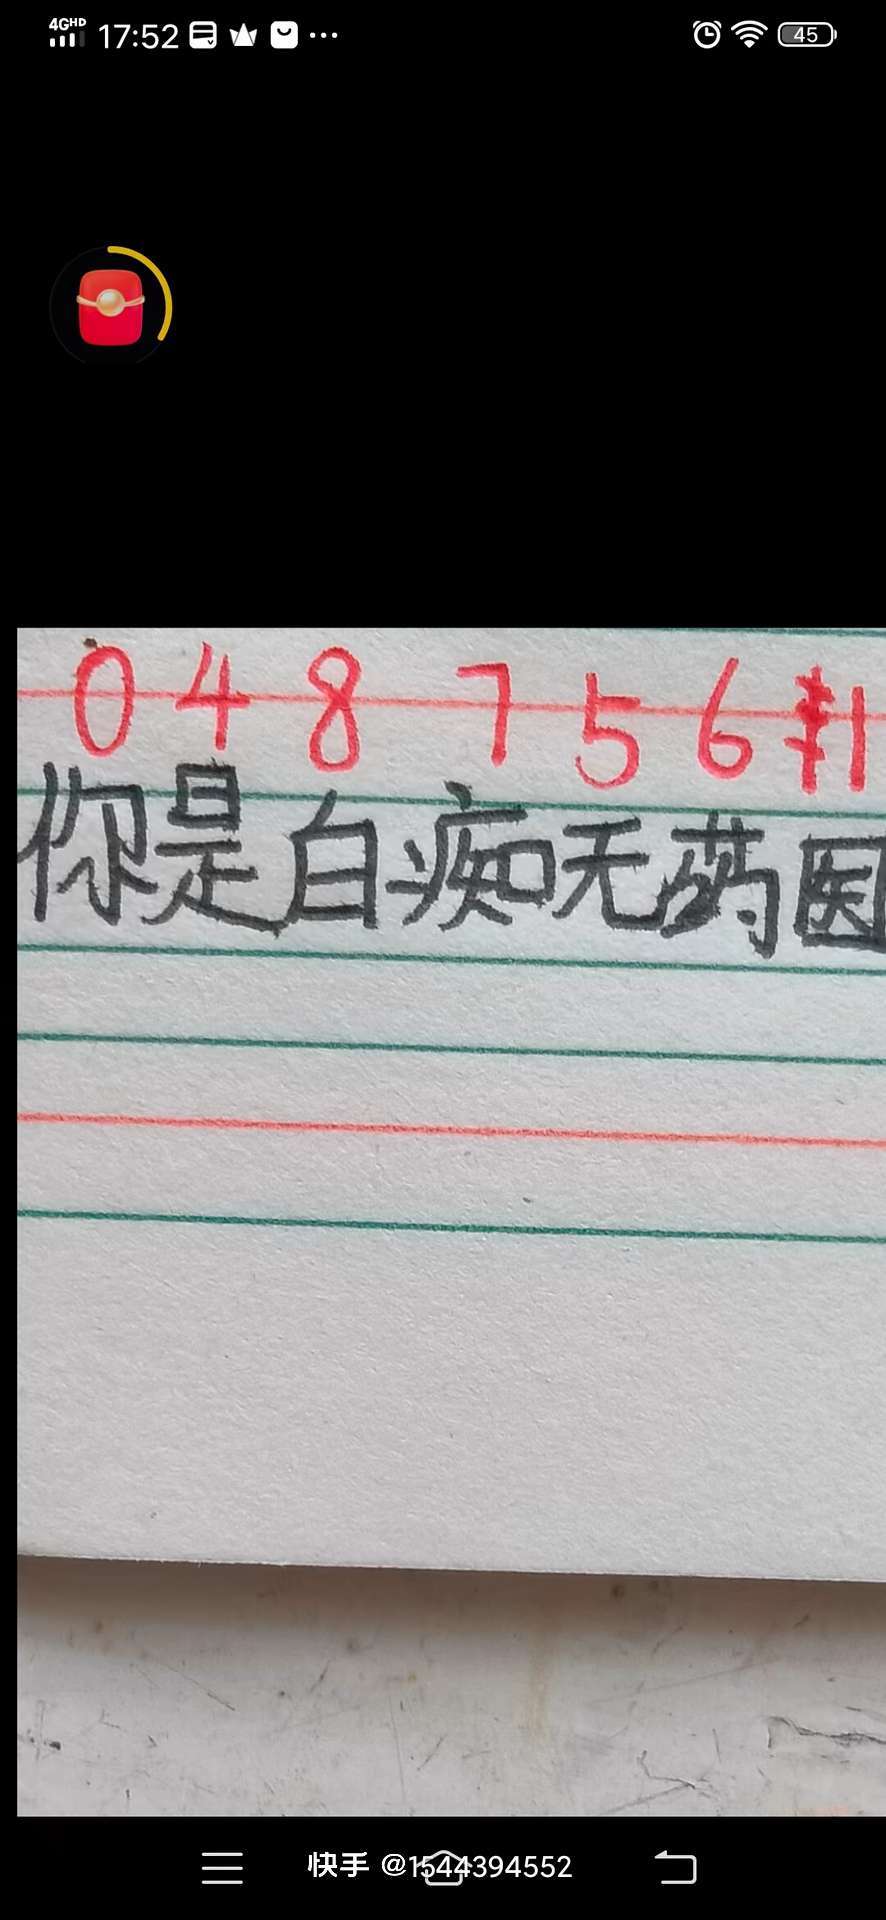 4GHD 17:52 45
0 4 8 7 5 6 1
你是白痴无药医
快手 @1544394552